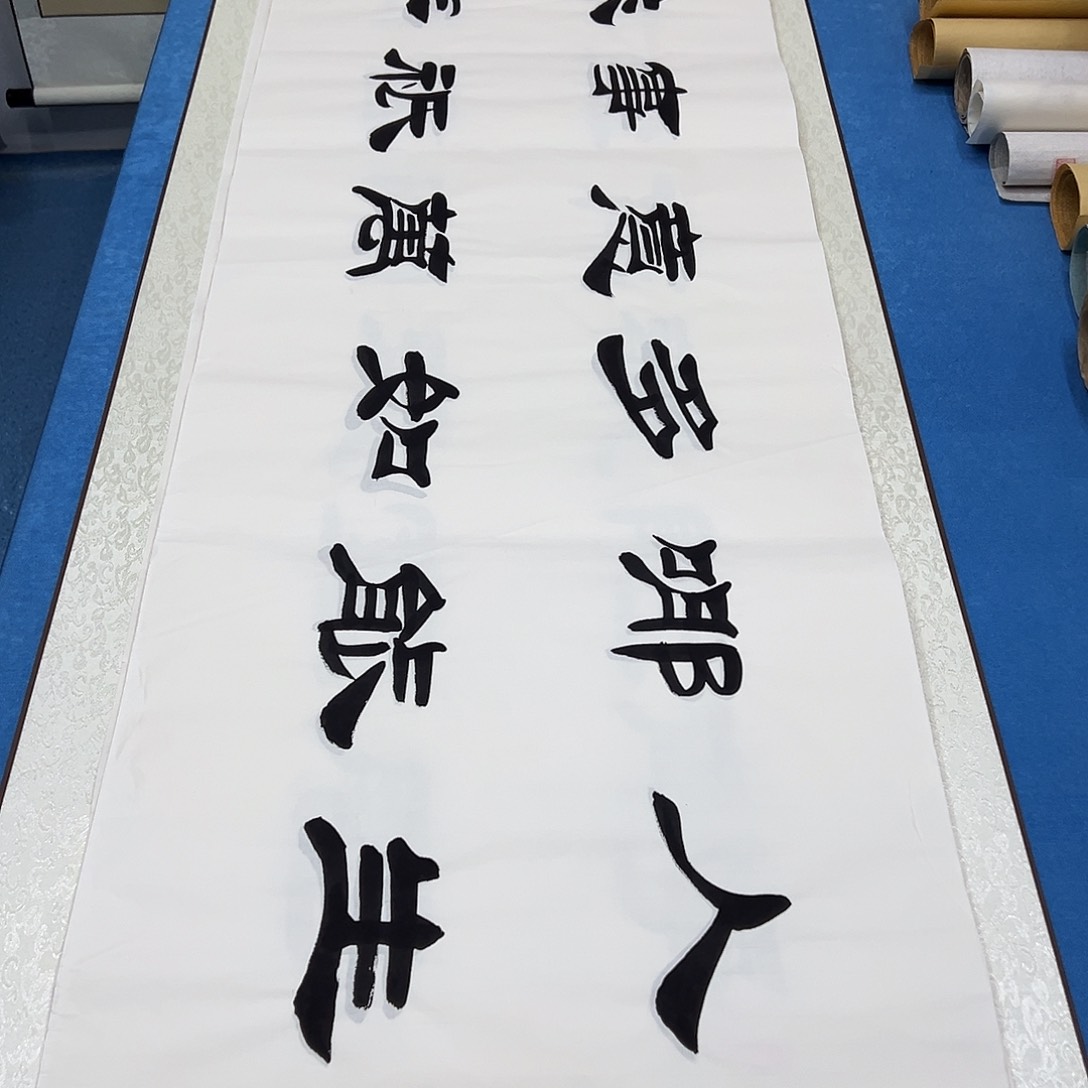 人生
哪能
多如
意萬
事祇